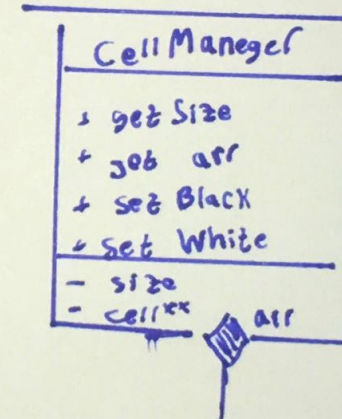 Cell Maneger
+ get Size
+ get arr
+ set Black
+ set White
- size
- cell**
arr